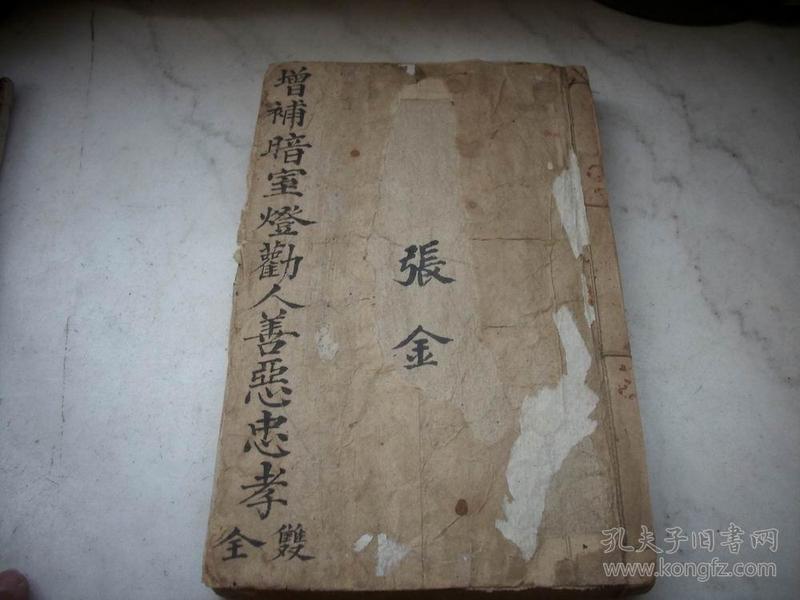 張金
增補暗室燈勸人善惡忠孝
雙全
孔夫子旧書网
www.kongfz.com